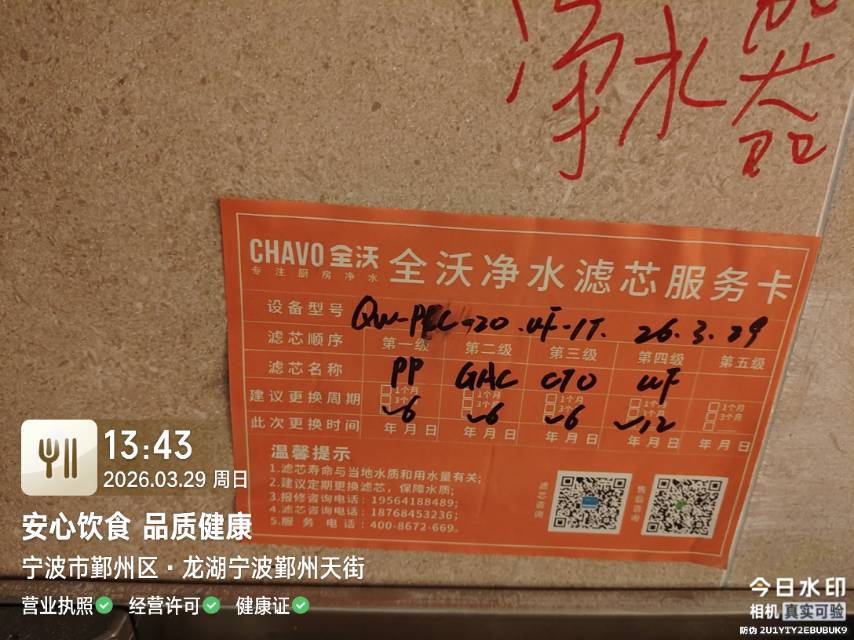 净水器
CHAVO 全沃
专注厨房净水
全沃净水滤芯服务卡
设备型号 QW-PFC-20.UF-1T. 26.3.29
滤芯顺序 第一级 第二级 第三级 第四级 第五级
滤芯名称 PP GAC CTO UF
建议更换周期 □1个月 □3个月 6 □1个月 □3个月 6 □1个月 □3个月 6 □1个月 12 □1个月 □3个月 □
此次更换时间 年月日 年月日 年月日 年月日 年月日
温馨提示
1.滤芯寿命与当地水质和用水量有关;
2.建议定期更换滤芯,保障水质;
3.报修咨询电话:19564188489;
4.滤芯咨询电话:18768453236;
5.服务电话:400-8672-669。
滤芯咨询
售后咨询
13:43
2026.03.29 周日
安心饮食 品质健康
宁波市鄞州区·龙湖宁波鄞州天街
营业执照 经营许可 健康证
今日水印
相机 真实可验
防伪 2U1YTY2EBUBUK9